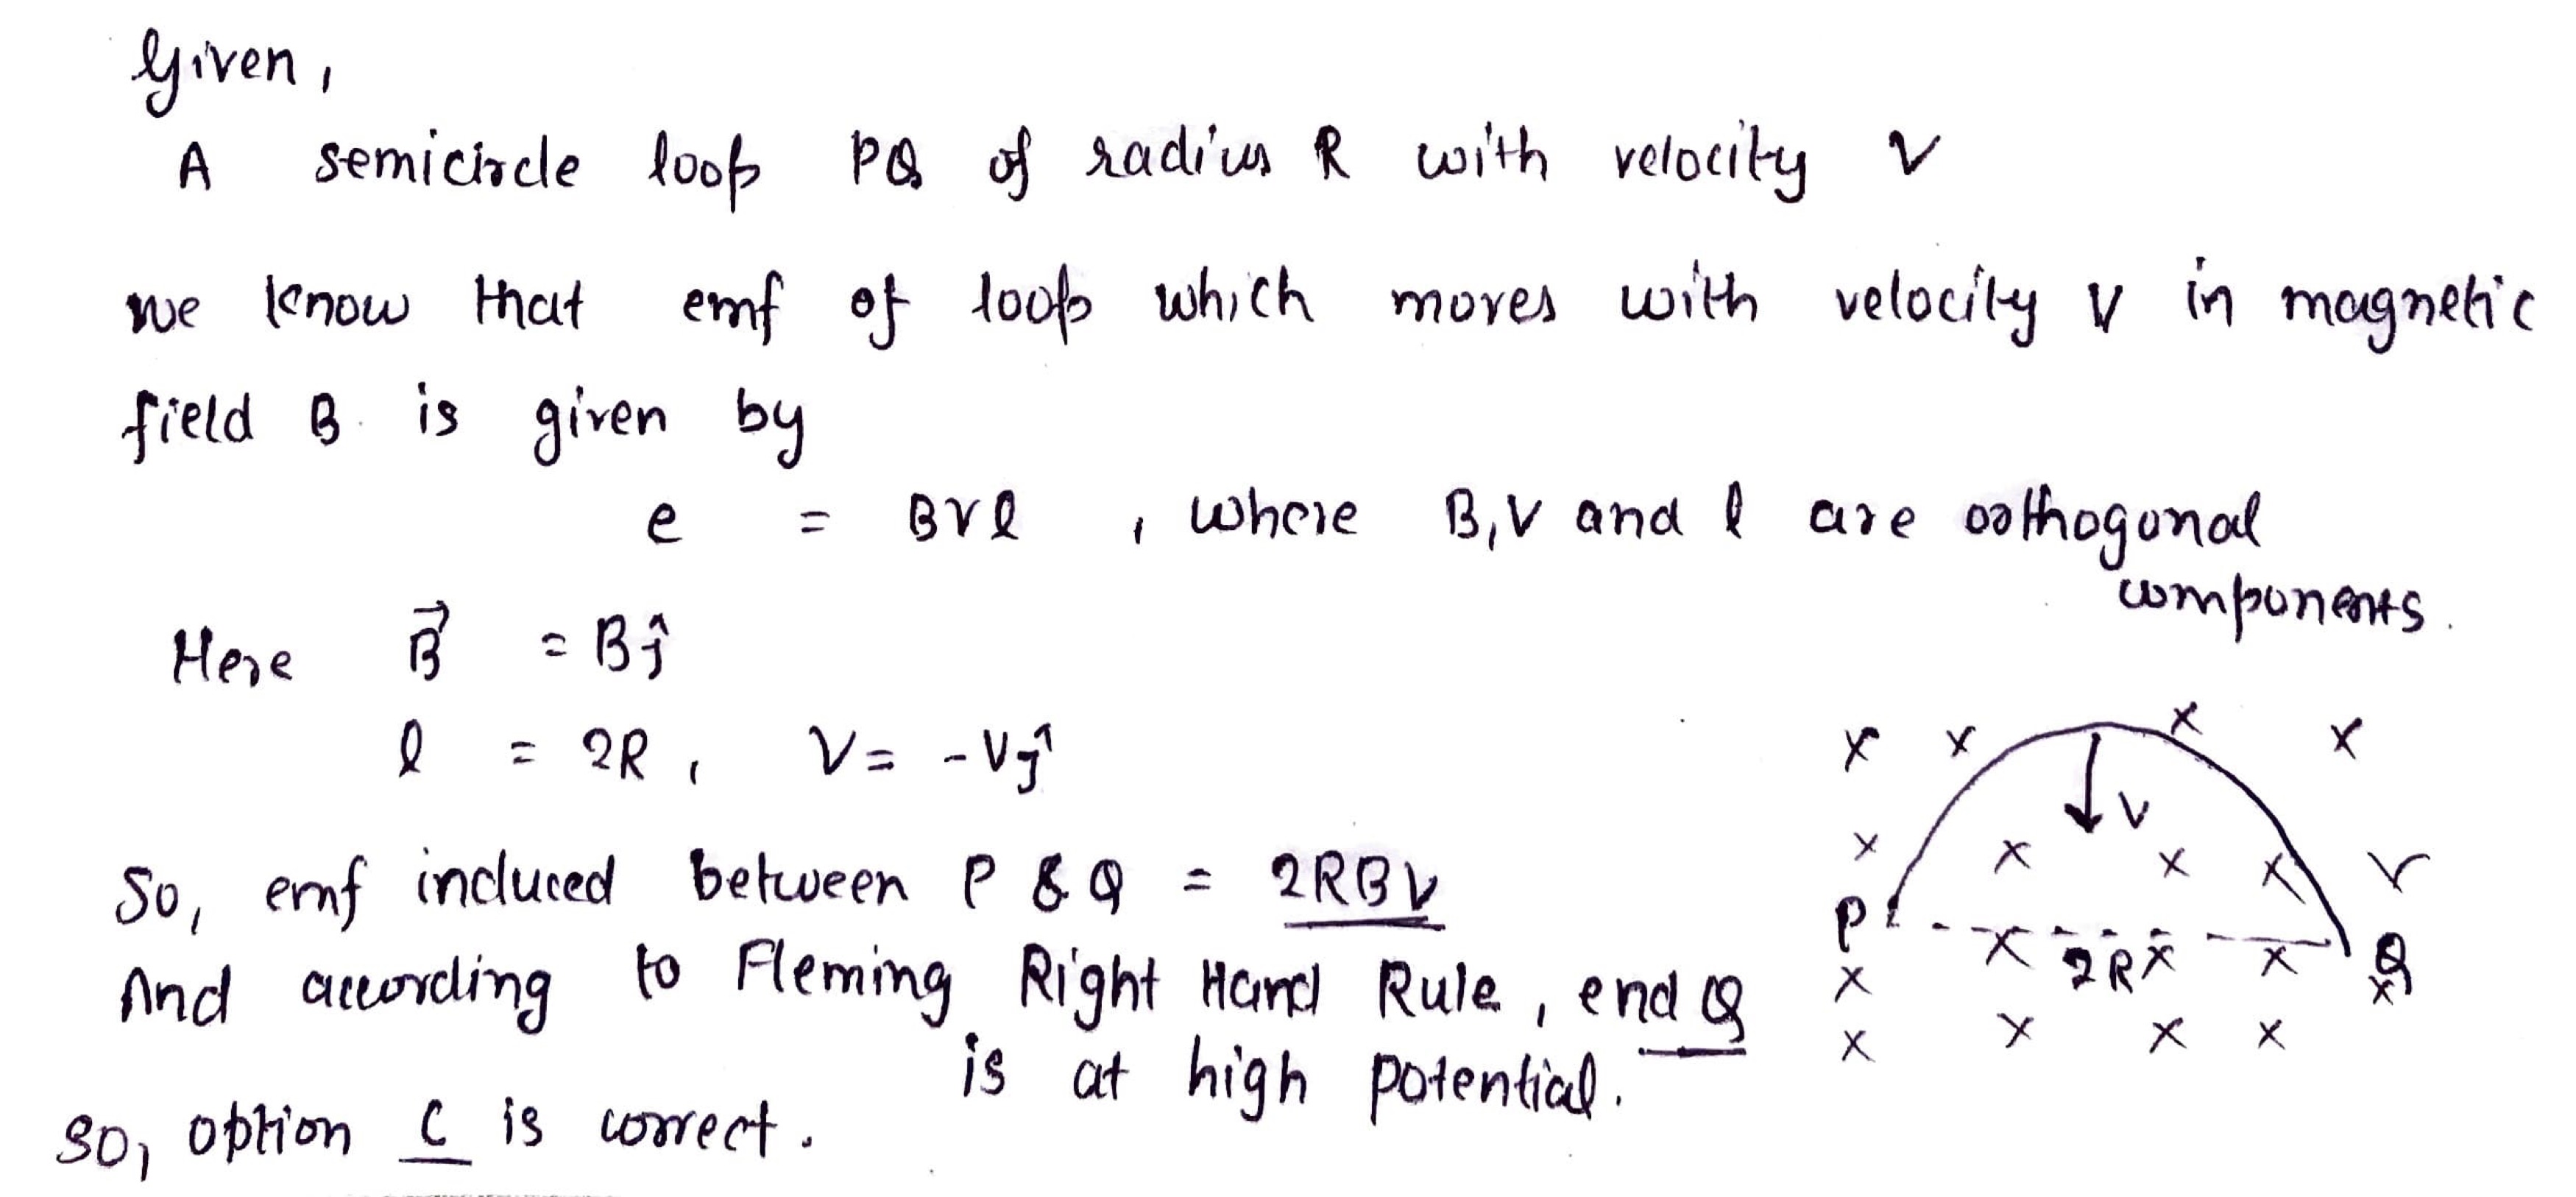 Given,
A semicircle loop PQ of radius R with velocity V
we know that emf of loop which moves with velocity V in magnetic
field B is given by
e = BVl , where B, V and l are orthogonal
components.
Here B⃗ = Bĵ
l = 2R , V = -Vĵ
So, emf induced between P & Q = 2RBV
And according to Fleming Right Hand Rule, end Q
is at high potential.
So, option C is correct.
x x x x
V
x x x x V
P x 2R x x Q
x x
x x x x